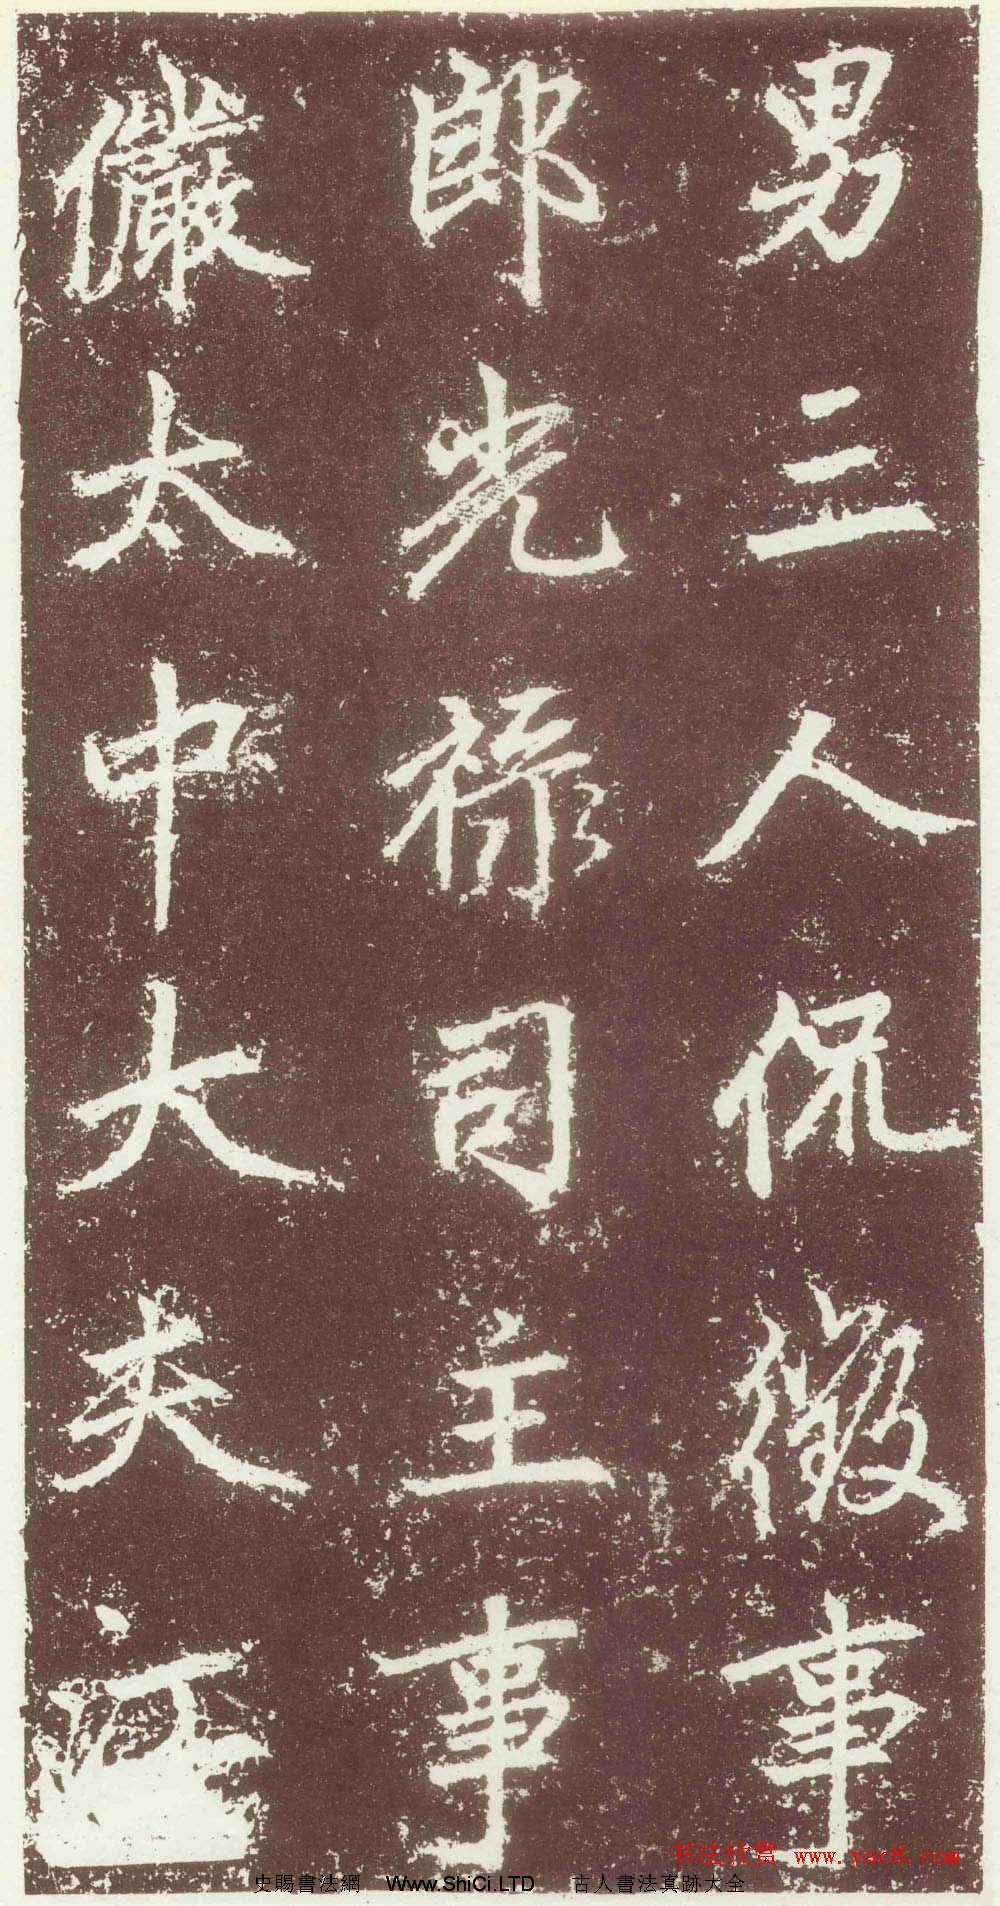 男三人侃儆事
郎光祿司主事
儼太中大夫江
书法欣赏 www.yac8.com
史賜書法網 Www.ShiCi.LTD 古人書法真跡大全